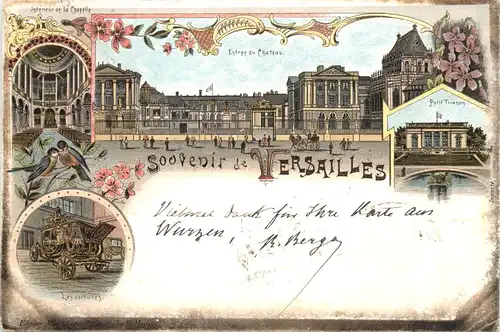 Intérieur de la Chapelle
Entrée du Chateau.
Petit Trianon
Souvenir de VERSAILLES
Vielmal dank für Ihre Karte aus
Wurzen, R. Berge
Les voitures.